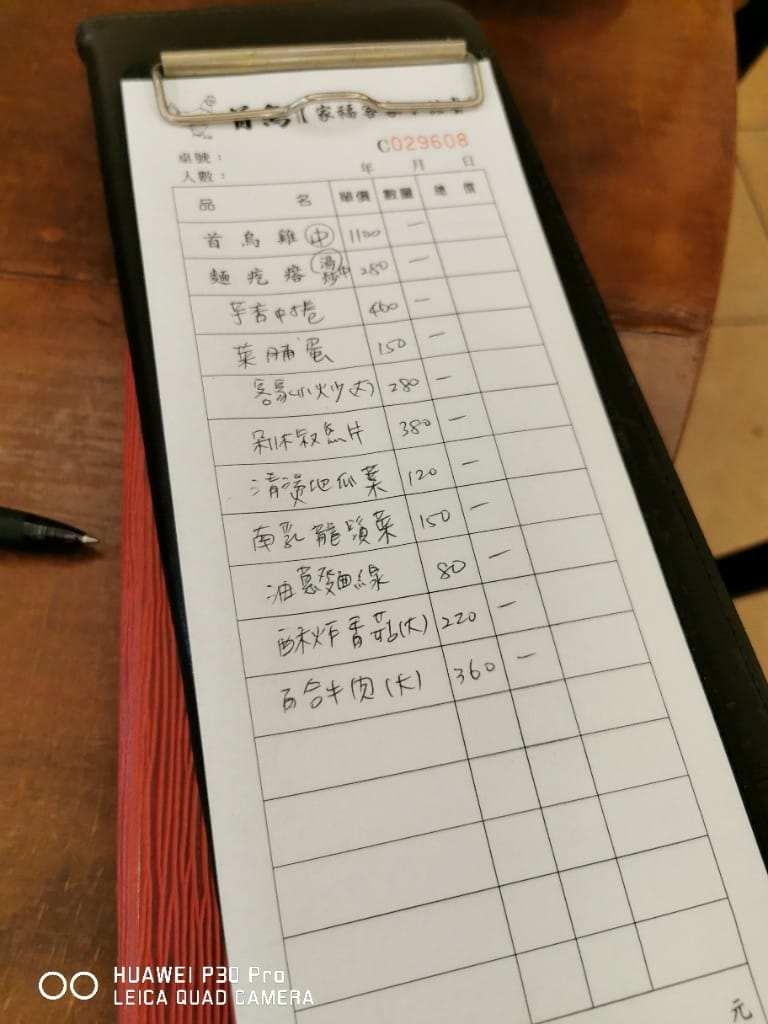 首烏 家福客家
C029608
桌號：
人數： 年 月 日
品 名 單價 數量 總 價
首烏雞 中 1100 一
麵疙瘩 湯 炒 中 280 一
芋香中卷 460 一
菜脯蛋 150 一
客家小炒(大) 280 一
剁椒魚片 380 一
清燙地瓜葉 120 一
南乳龍鬚菜 150 一
油蔥麵線 80 一
酥炸香菇(大) 220 一
百合牛肉(大) 360 一
元
HUAWEI P30 Pro
LEICA QUAD CAMERA